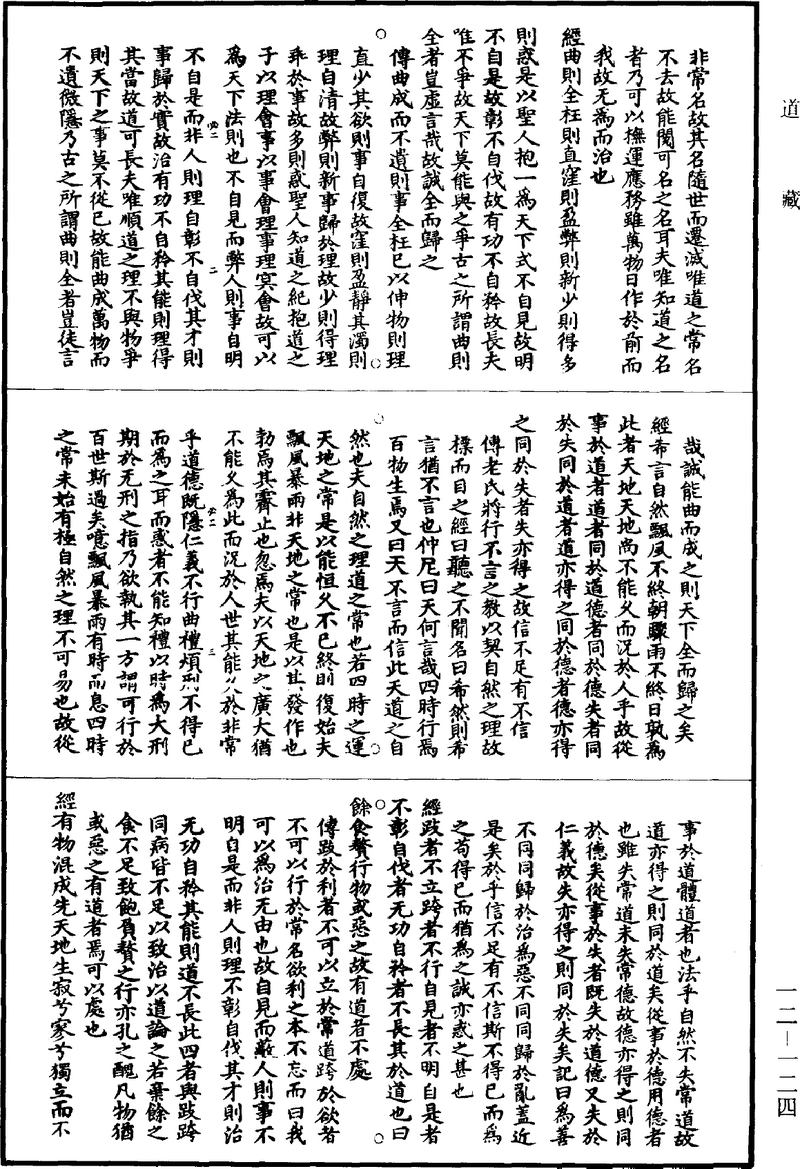 道藏
非常名故其名隨世而遷滅唯道之常名
不去故能閱可名之名耳夫唯知道之名
者乃可以撫運應務雖萬物日作於前而
我故无為而治也
經曲則全枉則直窪則盈弊則新少則得多
則惑是以聖人抱一為天下式不自見故明
不自是故彰不自伐故有功不自矜故長夫
唯不爭故天下莫能與之爭古之所謂曲則
全者豈虛言哉故誠全而歸之
傳曲成而不遺則事全枉已以伸物則理
直少其欲則事自復故窪則盈靜其濁則
理自清故弊則新事歸於理故少則得理
乖於事故多則惑聖人知道之紀抱道之
子以理會事以事會理事理冥會故可以
為天下法則也不自見而弊人則事自明
不自是而非人則理自彰不自伐其才則
事歸於實故治有功不自矜其能則理得
其當故道可長夫唯順道之理不與物爭
則天下之事莫不從已故能曲成萬物而
不遺微隱乃古之所謂曲則全者豈徒言
哉誠能曲而成之則天下全而歸之矣
經希言自然飄風不終朝驟雨不終日孰為
此者天地天地尚不能久而況於人乎故從
事於道者道者同於道德者同於德失者同
於失同於道者道亦得之同於德者德亦得
之同於失者失亦得之故信不足有不信
傳老氏將行不言之教以契自然之理故
標而目之經曰聽之不聞名曰希然則希
言猶不言也仲尼曰天何言哉四時行焉
百物生焉又曰天不言而信此天道之自
然也夫自然之理道之常也若四時之運
天地之常是以能恒久不已終則復始夫
飄風暴雨非天地之常也是以其發作也
勃焉其霽止也忽焉夫以天地之廣大猶
不能久為此而況於人世其能久於非常
乎道德既隱仁義不行曲禮煩刑不得已
而為之耳而惑者不能知禮以時為大刑
期於无刑之指乃欲執其一方謂可行於
百世斯過矣噫飄風暴雨有時而息四時
之常未始有極自然之理不可易也故從
事於道體道者也法乎自然不失常道故
道亦得之則同於道矣從事於德用德者
也雖失常道未失常德故德亦得之則同
於德矣從事於失者既失於道德又失於
仁義故失亦得之則同於失矣記曰為善
不同同歸於治為惡不同同歸於亂蓋近
是矣於乎信不足有不信斯不得已而為
之苟得已而猶為之誠亦惑之甚也
經跂者不立跨者不行自見者不明自是者
不彰自伐者无功自矜者不長其於道也曰
餘食贅行物或惡之故有道者不處
傳跂於利者不可以立於常道跨於欲者
不可以行於常名欲利之本不忘而曰我
可以為治无由也故自見而蔽人則事不
明自是而非人則理不彰自伐其才則治
无功自矜其能則道不長此四者與跂跨
同病皆不足以致治以道論之若棄餘之
食不足致飽負贅之行亦孔之醜凡物猶
或惡之有道者焉可以處也
經有物混成先天地生寂兮寥兮獨立而不
一二－一二四